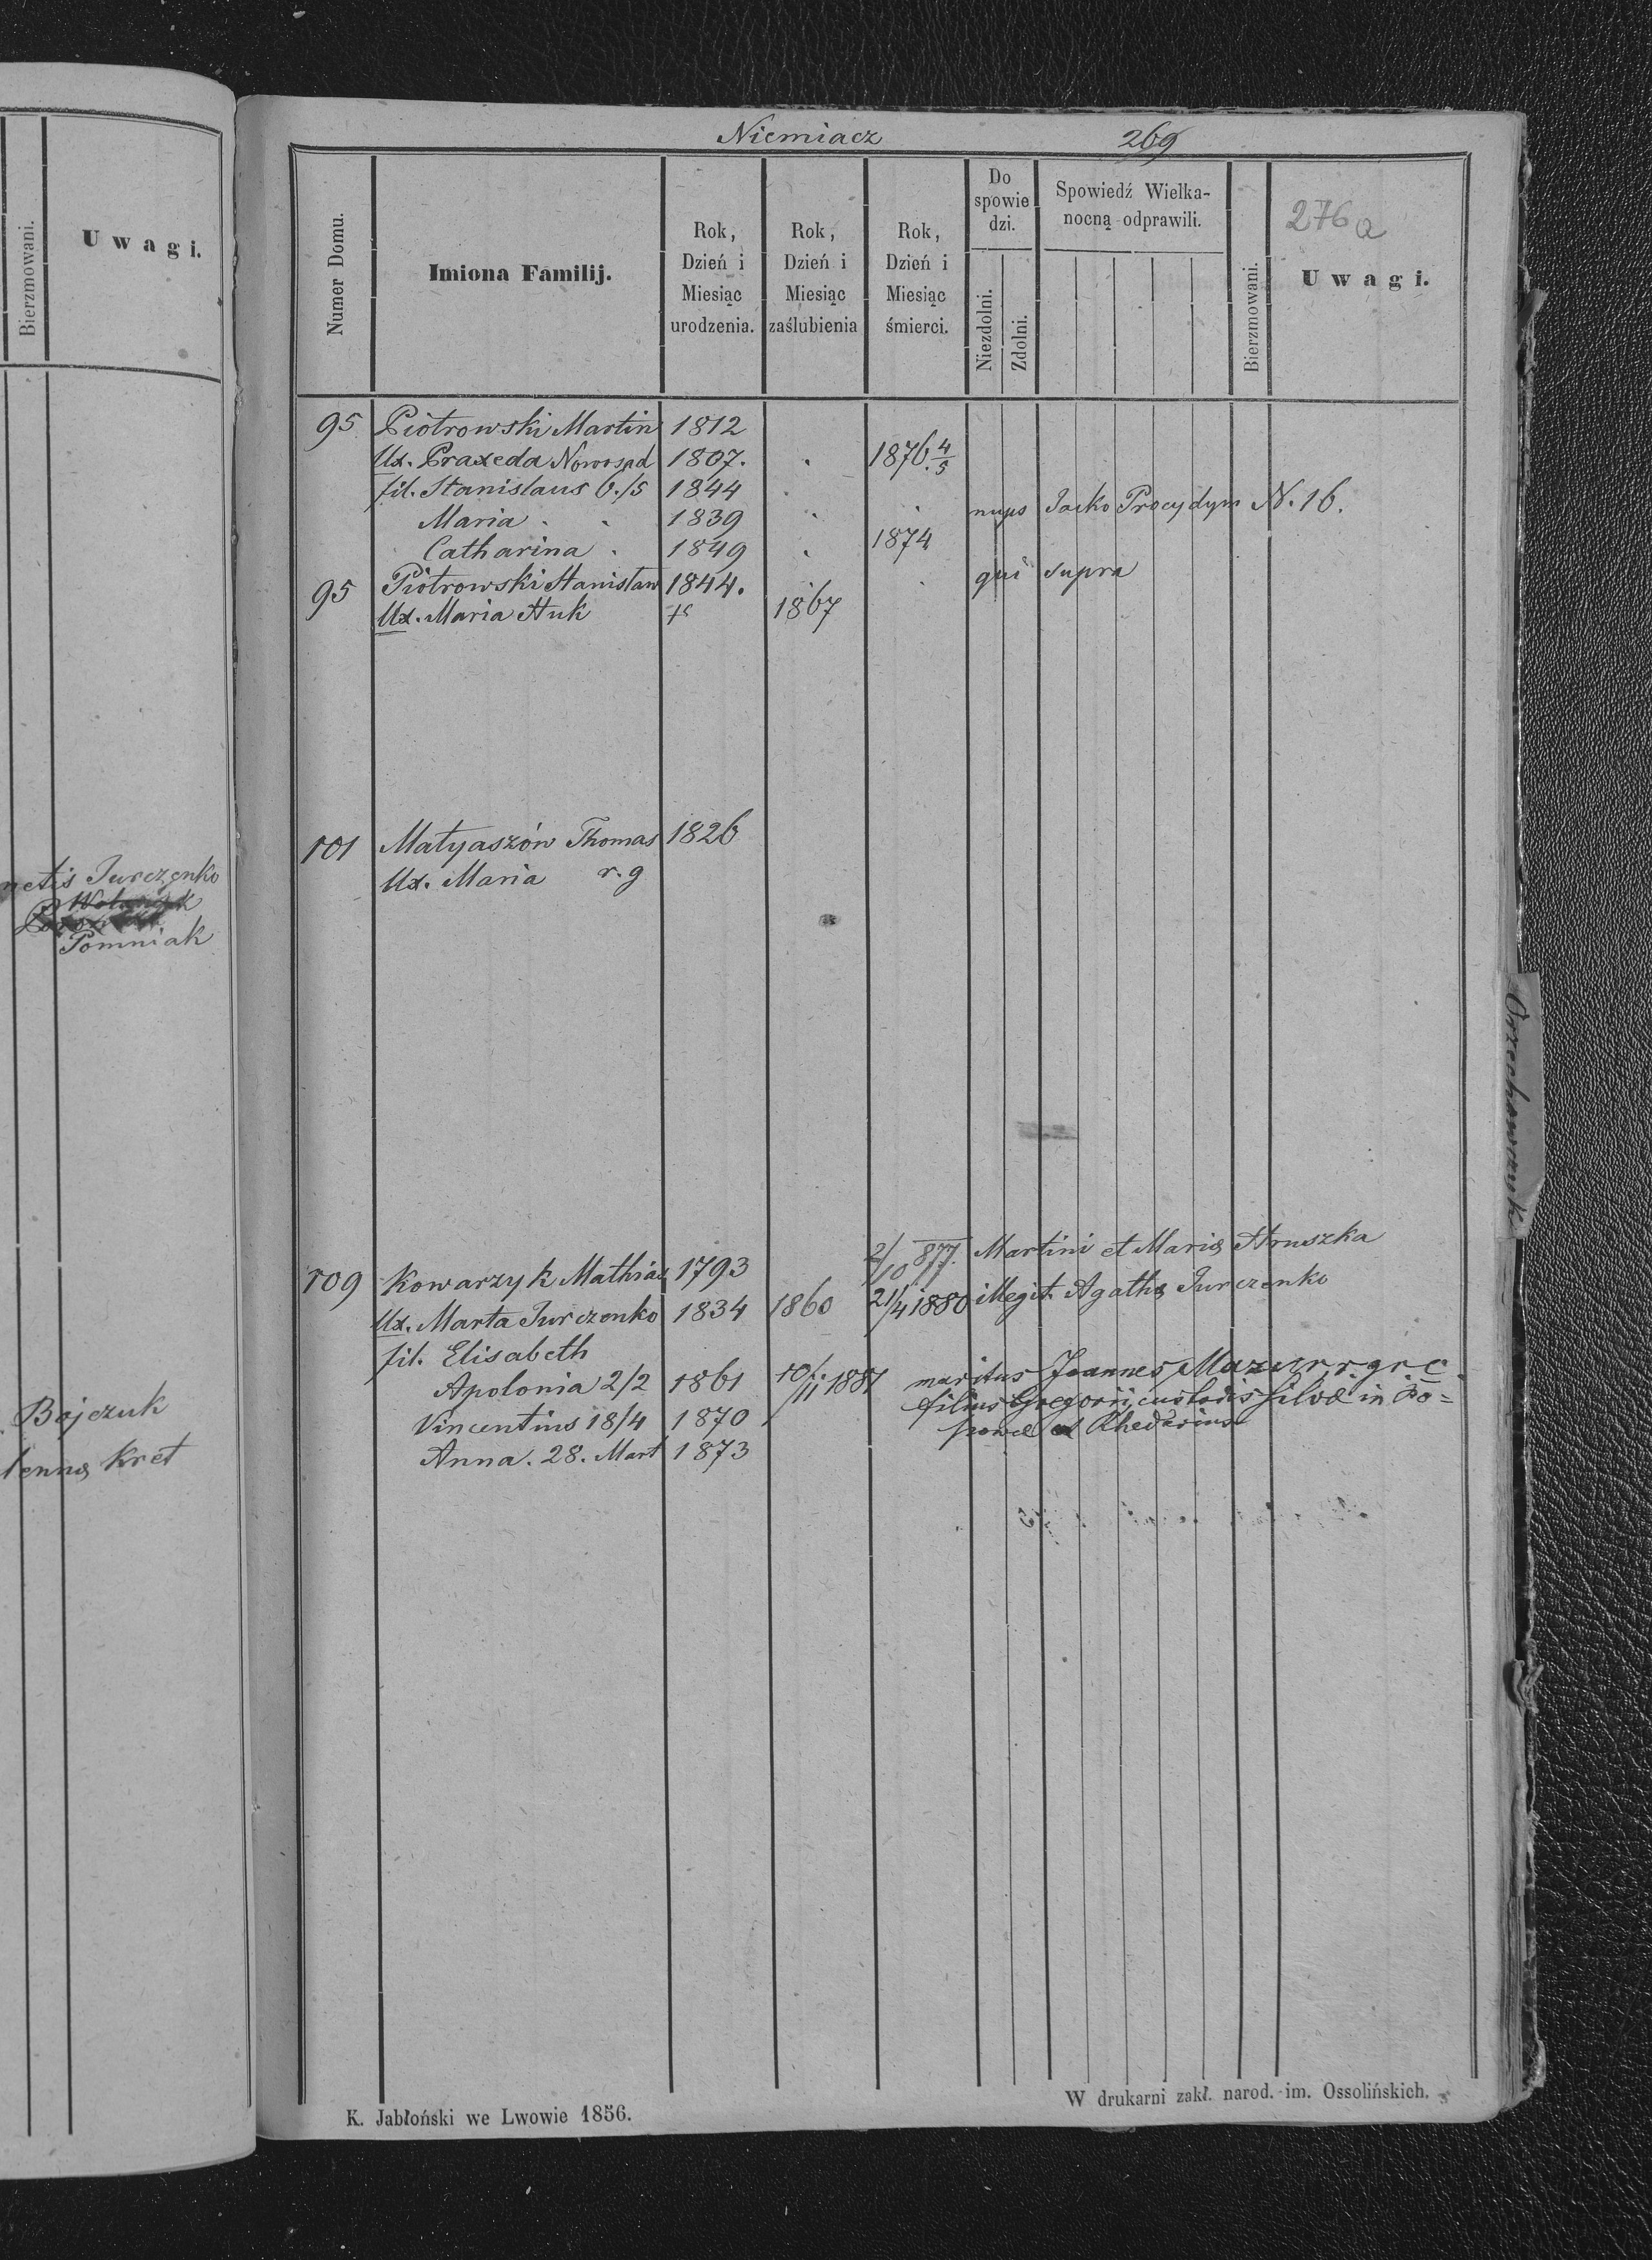 Bierzmowani.
Uwagi.
netis Jurczenko
Pomniak
Bojczuk
lennæ Kret
Niemiacz 269
276a
Numer Domu.
Imiona Familij.
Rok,
Dzień i
Miesiąc
urodzenia.
Rok,
Dzień i
Miesiąc
zaślubienia
Rok,
Dzień i
Miesiąc
śmierci.
Do
spowie
dzi.
Niezdolni.
Zdolni.
Spowiedź Wielka-
nocną odprawili.
Bierzmowani.
Uwagi.
95 Piotrowski Martin 1812
Ux. Praxeda Nowosad 1807. 1876. 4/5
fil. Stanislaus 6./5 1844
Maria 1839 nups Jacko Procydym N. 16.
Catharina 1849 1874
95 Piotrowski Stanisław 1844. qui supra
Ux. Maria Huk 1867
101 Matyaszów Thomas 1826
Ux. Maria r. g
109 Kowarzyk Mathias 1793 2/10 877. Martini et Mariæ Hruszka
Ux. Marta Jurczenko 1834 1860 21/4 1880 illegit. Agathæ Jurczenko
fil. Elisabeth
Apolonia 2/2 1861 10/11 1881 maritus Joannes Mazur r. gr. c.
filius Gregorii, custodis silvæ in Po=
Vincentius 18/4 1870
powce et Rhedarius
Anna. 28. Mart 1873
Orzechowczyk
K. Jabłoński we Lwowie 1856.
W drukarni zakł. narod. im. Ossolińskich.